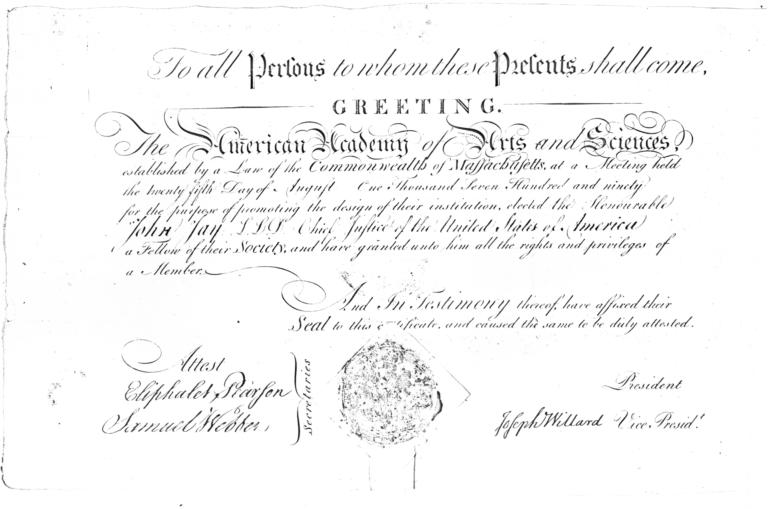 To all Persons to whom these Presents shall come,
GREETING.
The American Academy of Arts and Sciences,
established by a Law of the Commonwealth of Massachusetts, at a Meeting held
the twenty fifth Day of August One Thousand Seven Hundred and ninety
for the purpose of promoting the design of their institution, elected the Honourable
John Jay LLD Chief Justice of the United States of America
a Fellow of their Society, and have granted unto him all the rights and privileges of
a Member.
And In Testimony thereof, have affixed their
Seal to this certificate, and caused the same to be duly attested.
Attest
Eliphalet Pearson
Samuel Webber,
Secretaries
President
Joseph Willard Vice Presidt.